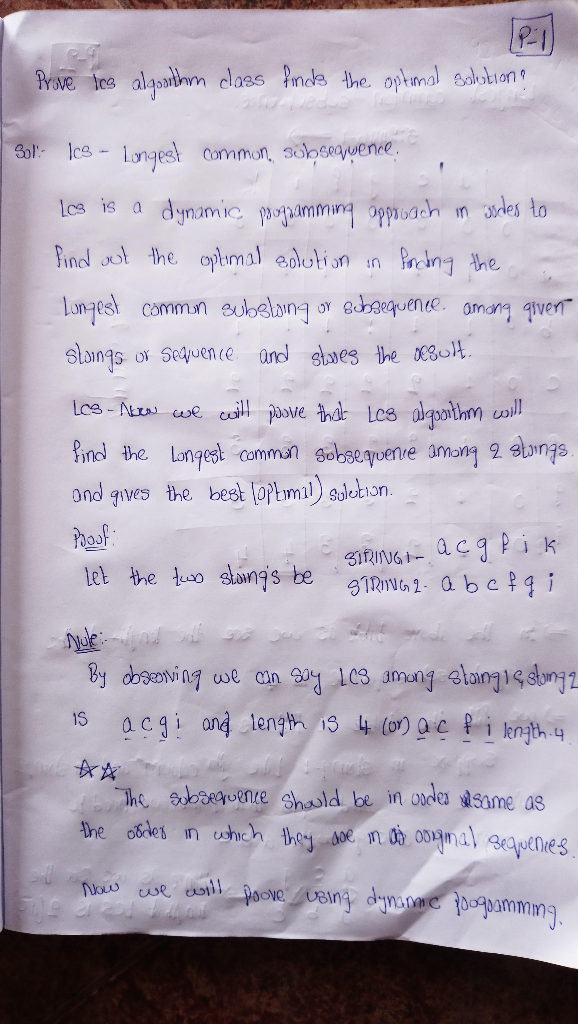 P-1
Prove lcs algorithm class finds the optimal solution?
Sol:- lcs - Longest common, subsequence.
Lcs is a dynamic programming approach in order to
find out the optimal solution in finding the
longest common substring or subsequence. among given
strings or sequence and stores the result.
Lcs - Now we will prove that Lcs algorithm will
find the longest common subsequence among 2 strings.
and gives the best (optimal) solution.
Proof:
STRING1- a c g f i k
let the two string's be STRING2- a b c f g i
Note:-
By observing we can say LCS among string1 & string2
is a c g i and length is 4 (or) a c f i length-4
☆☆
The subsequence should be in order same as
the order in which they are in original sequences.
Now we will prove using dynamic programming.